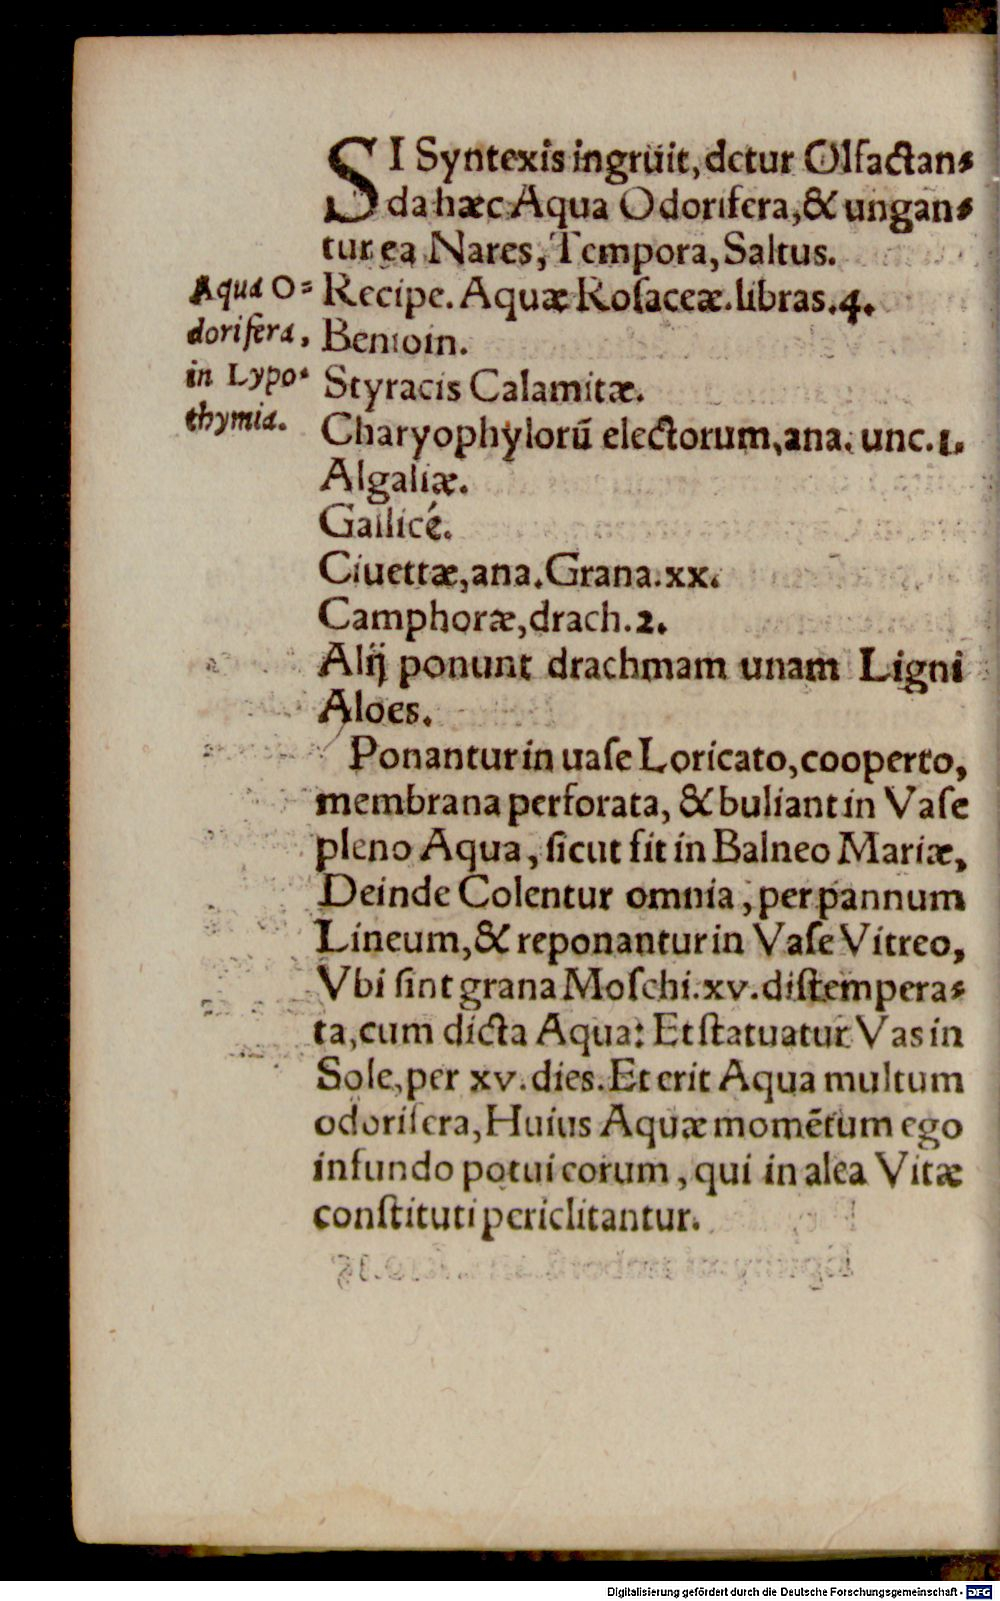 SI Syntexis ingruit, detur Olfactan⸗
da hæc Aqua Odorifera, & ungan⸗
tur ea Nares, Tempora, Saltus.
Aqua O⸗
dorifera,
in Lypo⸗
thymia.
Recipe. Aquæ Rosaceæ. libras. 4.
Benioin.
Styracis Calamitæ.
Charyophylorū electorum, ana. unc. 1.
Algaliæ.
Gallicé.
Ciuettæ, ana. Grana. xx.
Camphoræ, drach. 2.
Alij ponunt drachmam unam Ligni
Aloes.
Ponantur in uaſe Loricato, cooperto,
membrana perforata, & buliant in Vaſe
pleno Aqua, ſicut fit in Balneo Mariæ,
Deinde Colentur omnia, per pannum
Lineum, & reponantur in Vaſe Vitreo,
Vbi ſint grana Moſchi. xv. diſtempera⸗
ta, cum dicta Aqua: Et ſtatuatur Vas in
Sole, per xv. dies. Et erit Aqua multum
odorifera, Huius Aquæ momētum ego
infundo potui eorum, qui in alea Vitæ
conſtituti periclitantur.
Digitalisierung gefördert durch die Deutsche Forschungsgemeinschaft - DFG